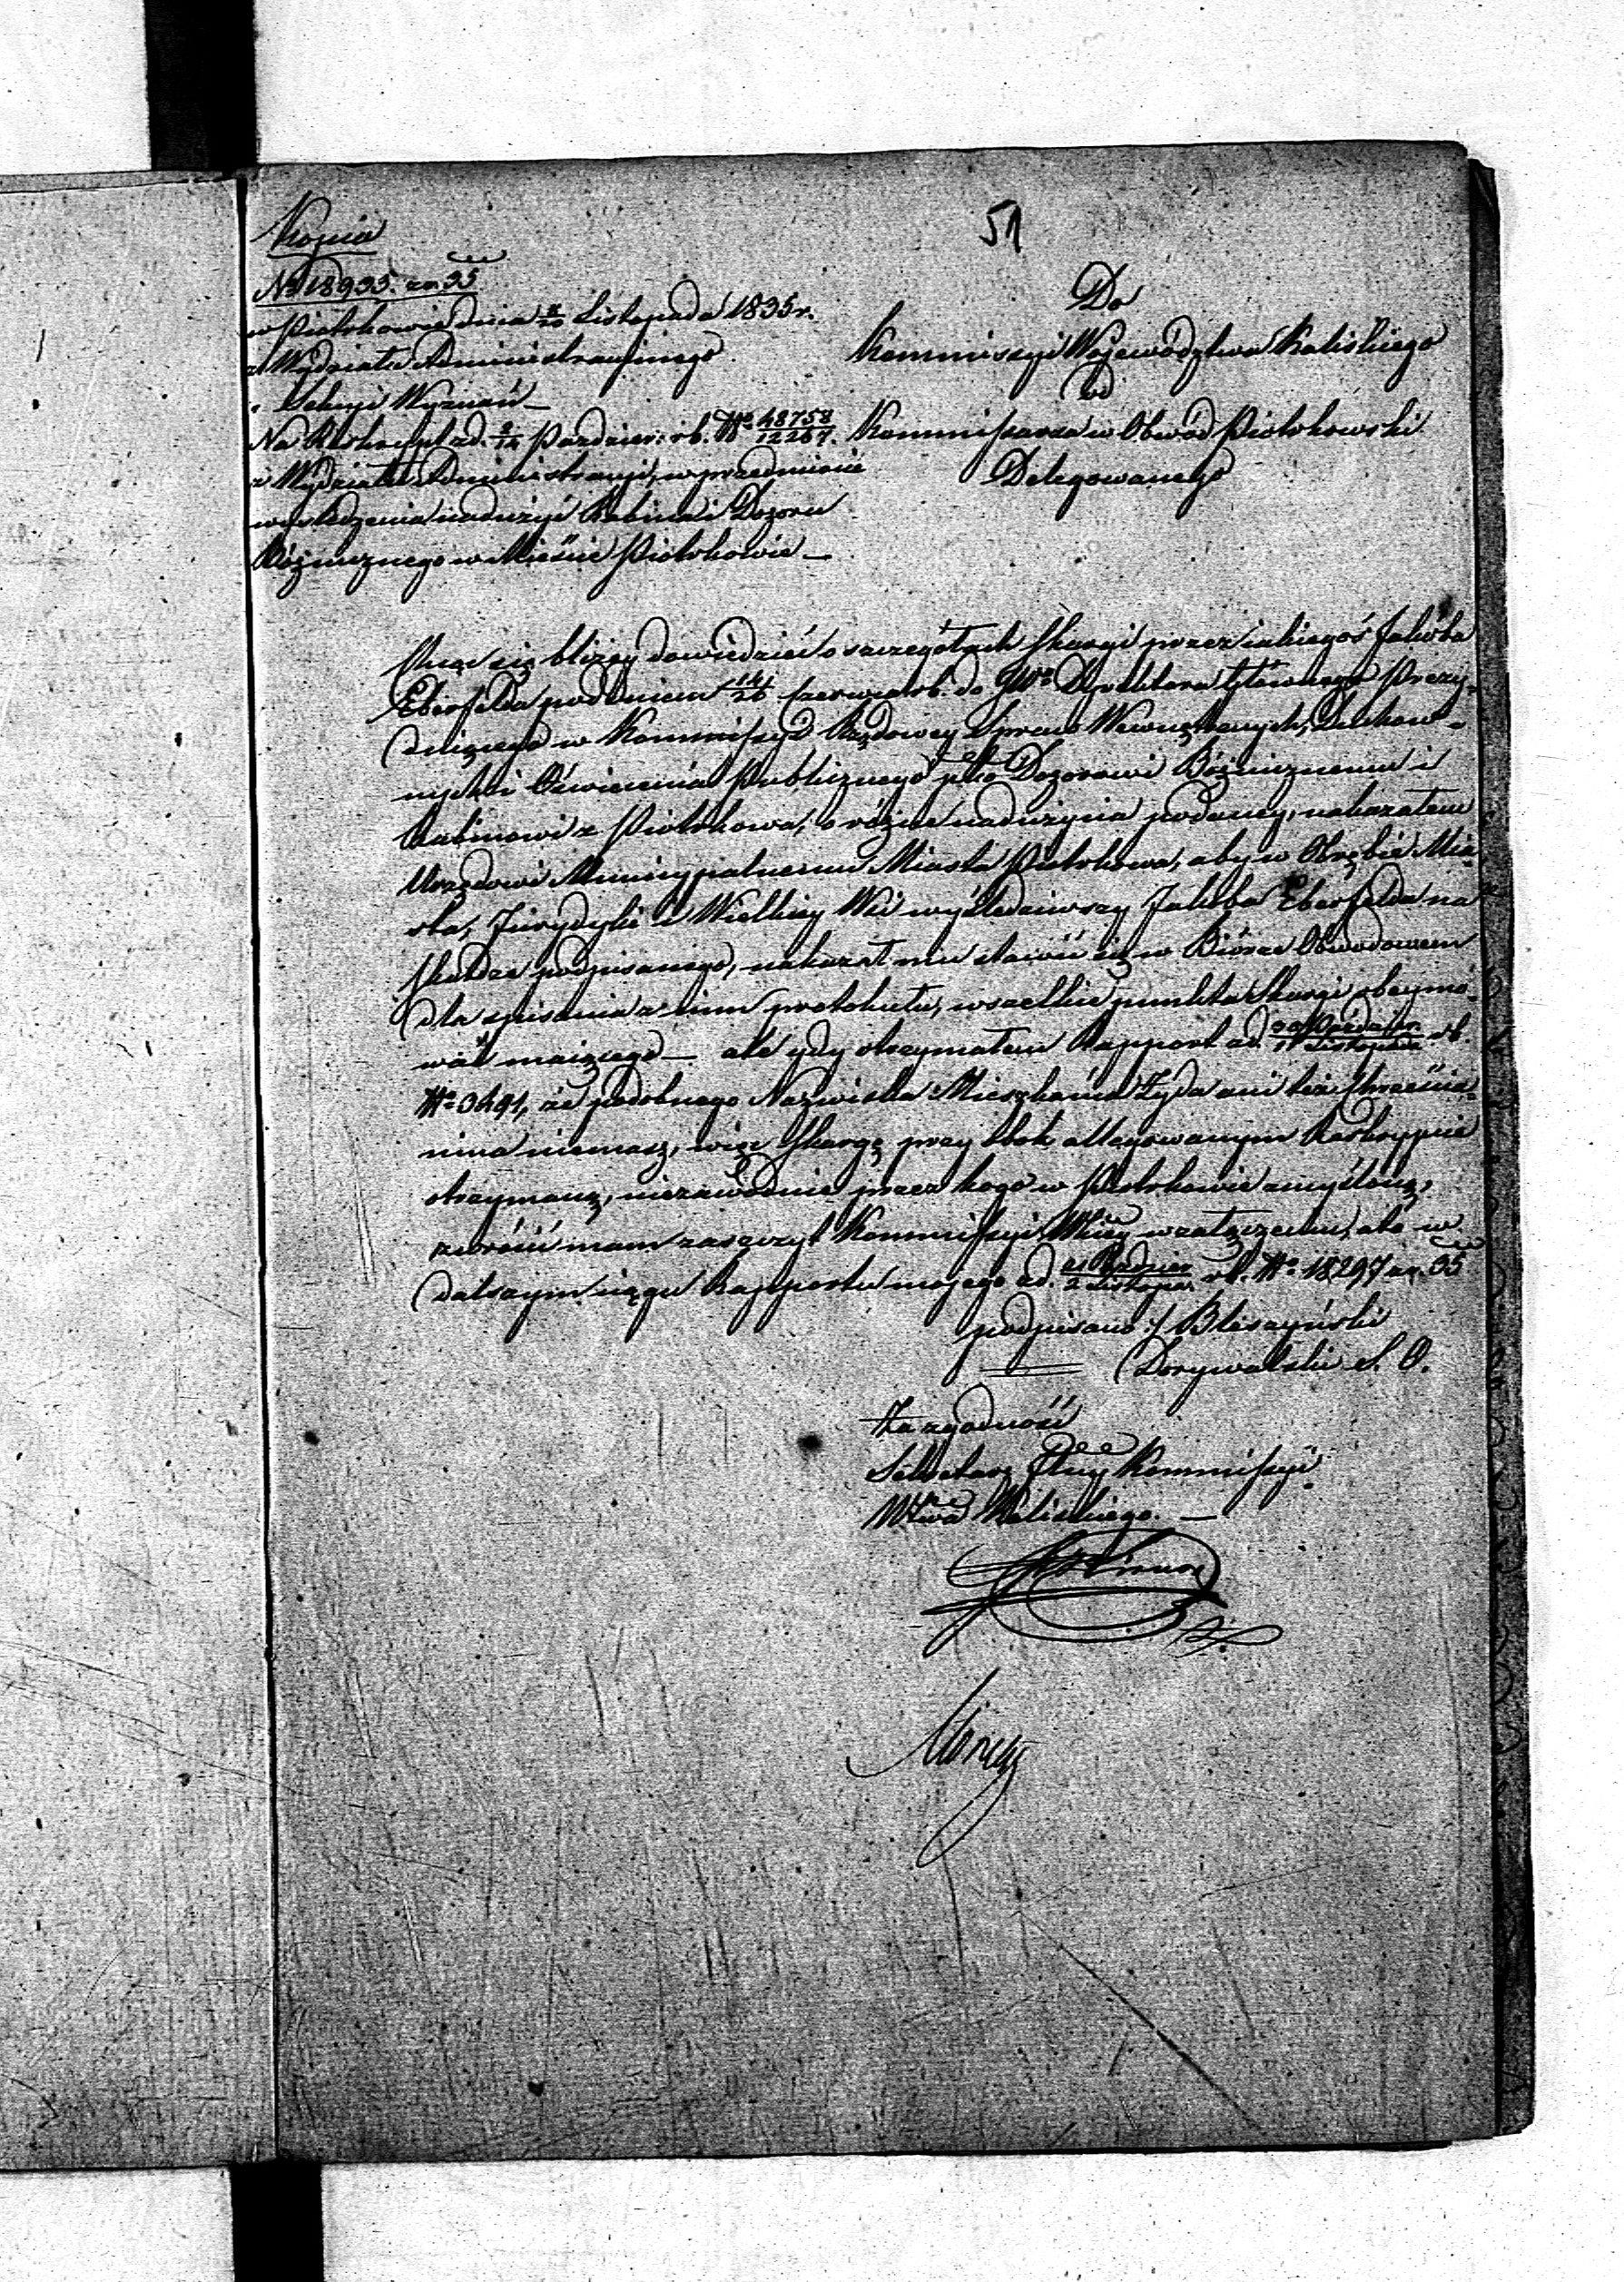 51
Kopia
No 18935. an. 35
w Piotrkowie dnia 8/20 Listopada 1835 r.
z Wydziału Administracyinego
Sekcyi Wyznań —
Na Reskrypt z d. 2/14 Pazdzier: r. b. No 48758/12267.
z Wydziału Administracyi, w przedmiocie
wyśledzenia nadużyć Rabina i Dozoru
Bóżnicznego w Mieście Piotrkowie —
Do
Kommissyi Województwa Kaliskiego
od
Kommissarza w Obwód Piotrkowski
Delegowanego
Chcąc się bliżey dowiedzieć o szczegółach skargi przez iakiegoś Jakóba
Eberfelda pod dniem 14/26 Czerwca r. b. do JWo Dyrektora Głównego Prezy-
duiącego w Kommissyi Rządowey Spraw Wewnętrznych, Duchow-
nych i Oświecenia Publicznego pko Dozorowi Bóżnicznemu i
Rabinowi z Piotrkowa, o różne nadużycia podaney, nakazałem
Urzędowi Municypalnemu Miasta Piotrkowa, aby w Obrębie Mia-
sta, Jurydyki i Wielkiey Wsi wyśledziwszy Jakóba Eberfelda na
skardze podpisanego, nakazał mu stawić się w Biórze Obwodowem
dla spisania z nim protokułu, wszelkie punkta skargi obeymo-
wać maiącego — ale gdy otrzymałem Rapport z d. 20 Paździer./1 Listopada r. b.
No 3491, że podobnego Nazwiska Mieszkańca Żyda ani też Chrześcia-
nina niemasz, więc skargę przy obok allegowanym Reskrypcie
otrzymaną, niezawodnie przez kogo w Piotrkowie zmyśloną,
zwrócić mam zaszczyt Kommissyi Wkiey w załączeniu, ato w
dalszym ciągu Rapportu mojego z d. 21 Paździer/2 Listopa. r. b. No 18297 an. 35
podpisano :/ Bleszyński
Dorywalski S. O.
Za zgodność
Sekretarz Jlny Kommissyi
Wtwa Kaliskiego. —